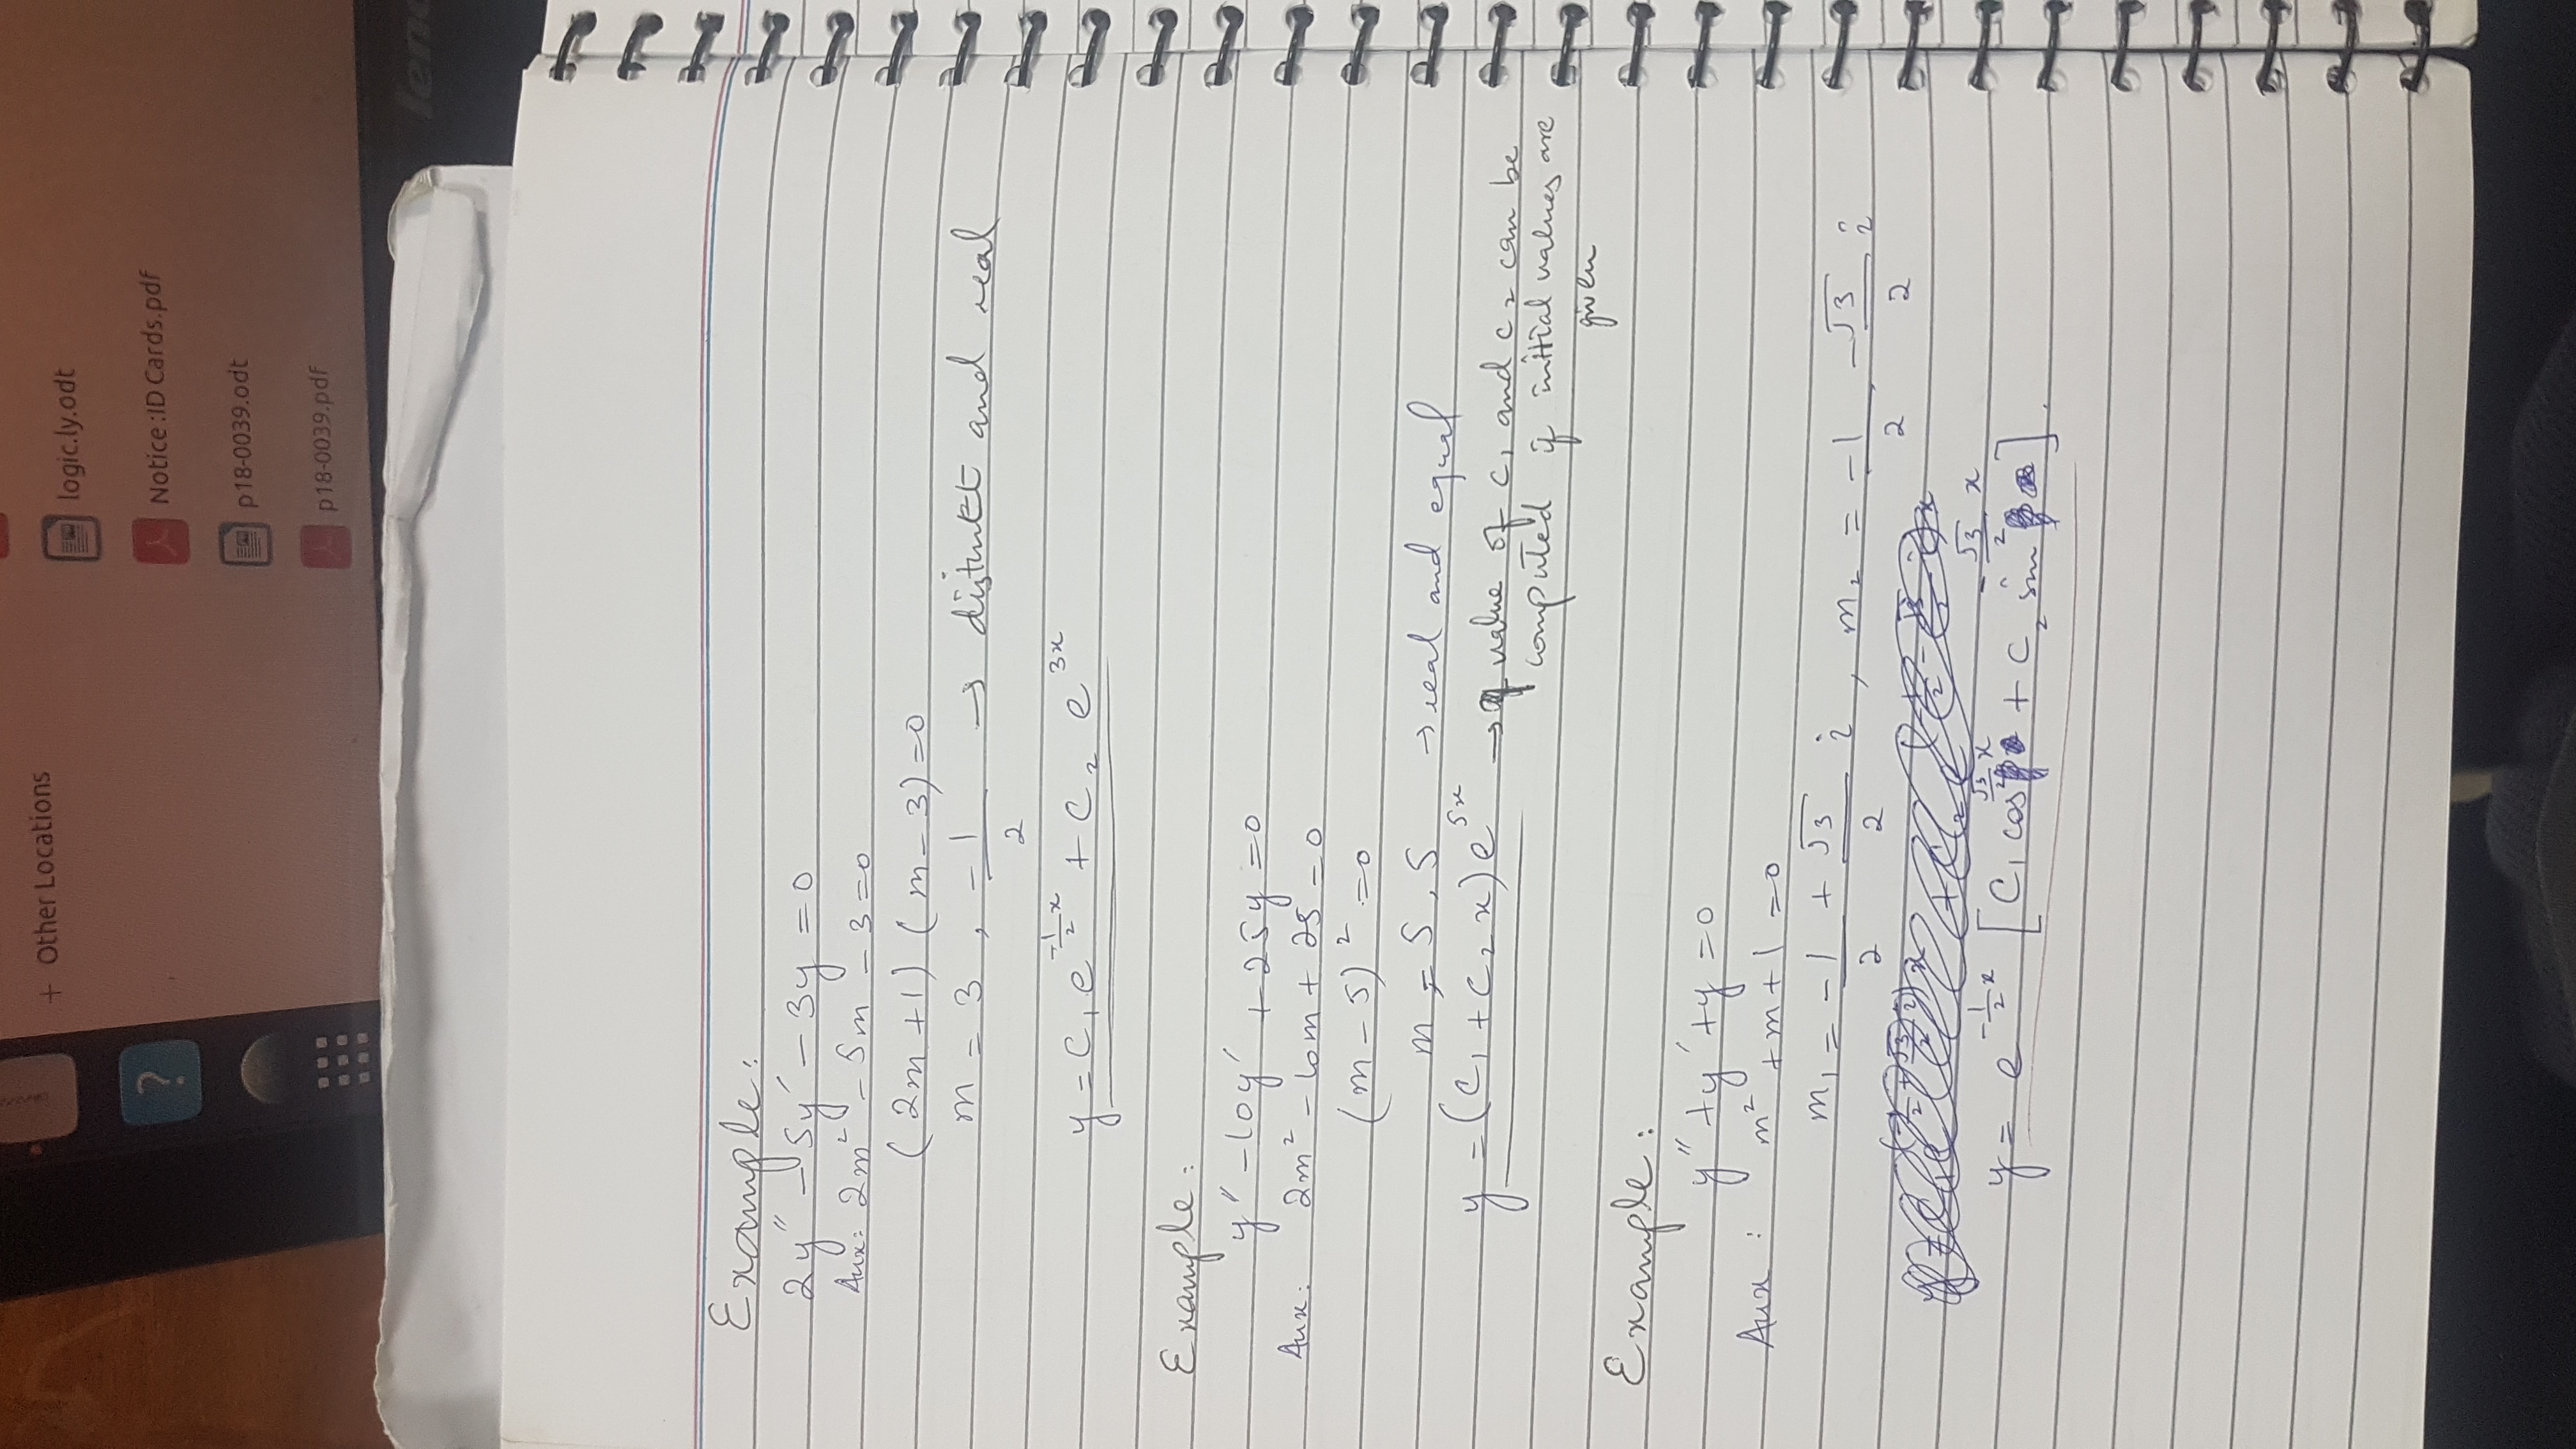 + Other Locations
logic.ly.odt
?
Notice :ID Cards.pdf
p18-0039.odt
p18-0039.pdf
Example:
2y'' - 5y' - 3y = 0
Aux: 2m² - 5m - 3 = 0
(2m + 1) (m - 3) = 0
m = 3 , -1/2 → distinct and real
y = C₁ e^(-1/2 x) + C₂ e^(3x)
Example:
y'' - 10y' + 25y = 0
Aux: 2m² - 10m + 25 = 0
(m - 5)² = 0
m = 5, 5 → real and equal
y = (C₁ + C₂ x) e^(5x) → value of C₁ and C₂ can be
computed if initial values are
given
Example:
y'' + y' + y = 0
Aux : m² + m + 1 = 0
m₁ = -1/2 + √3/2 i , m₂ = -1/2 - √3/2 i
y = e^(-1/2 x) [C₁ cos √3/2 x + C₂ sin -√3/2 x].